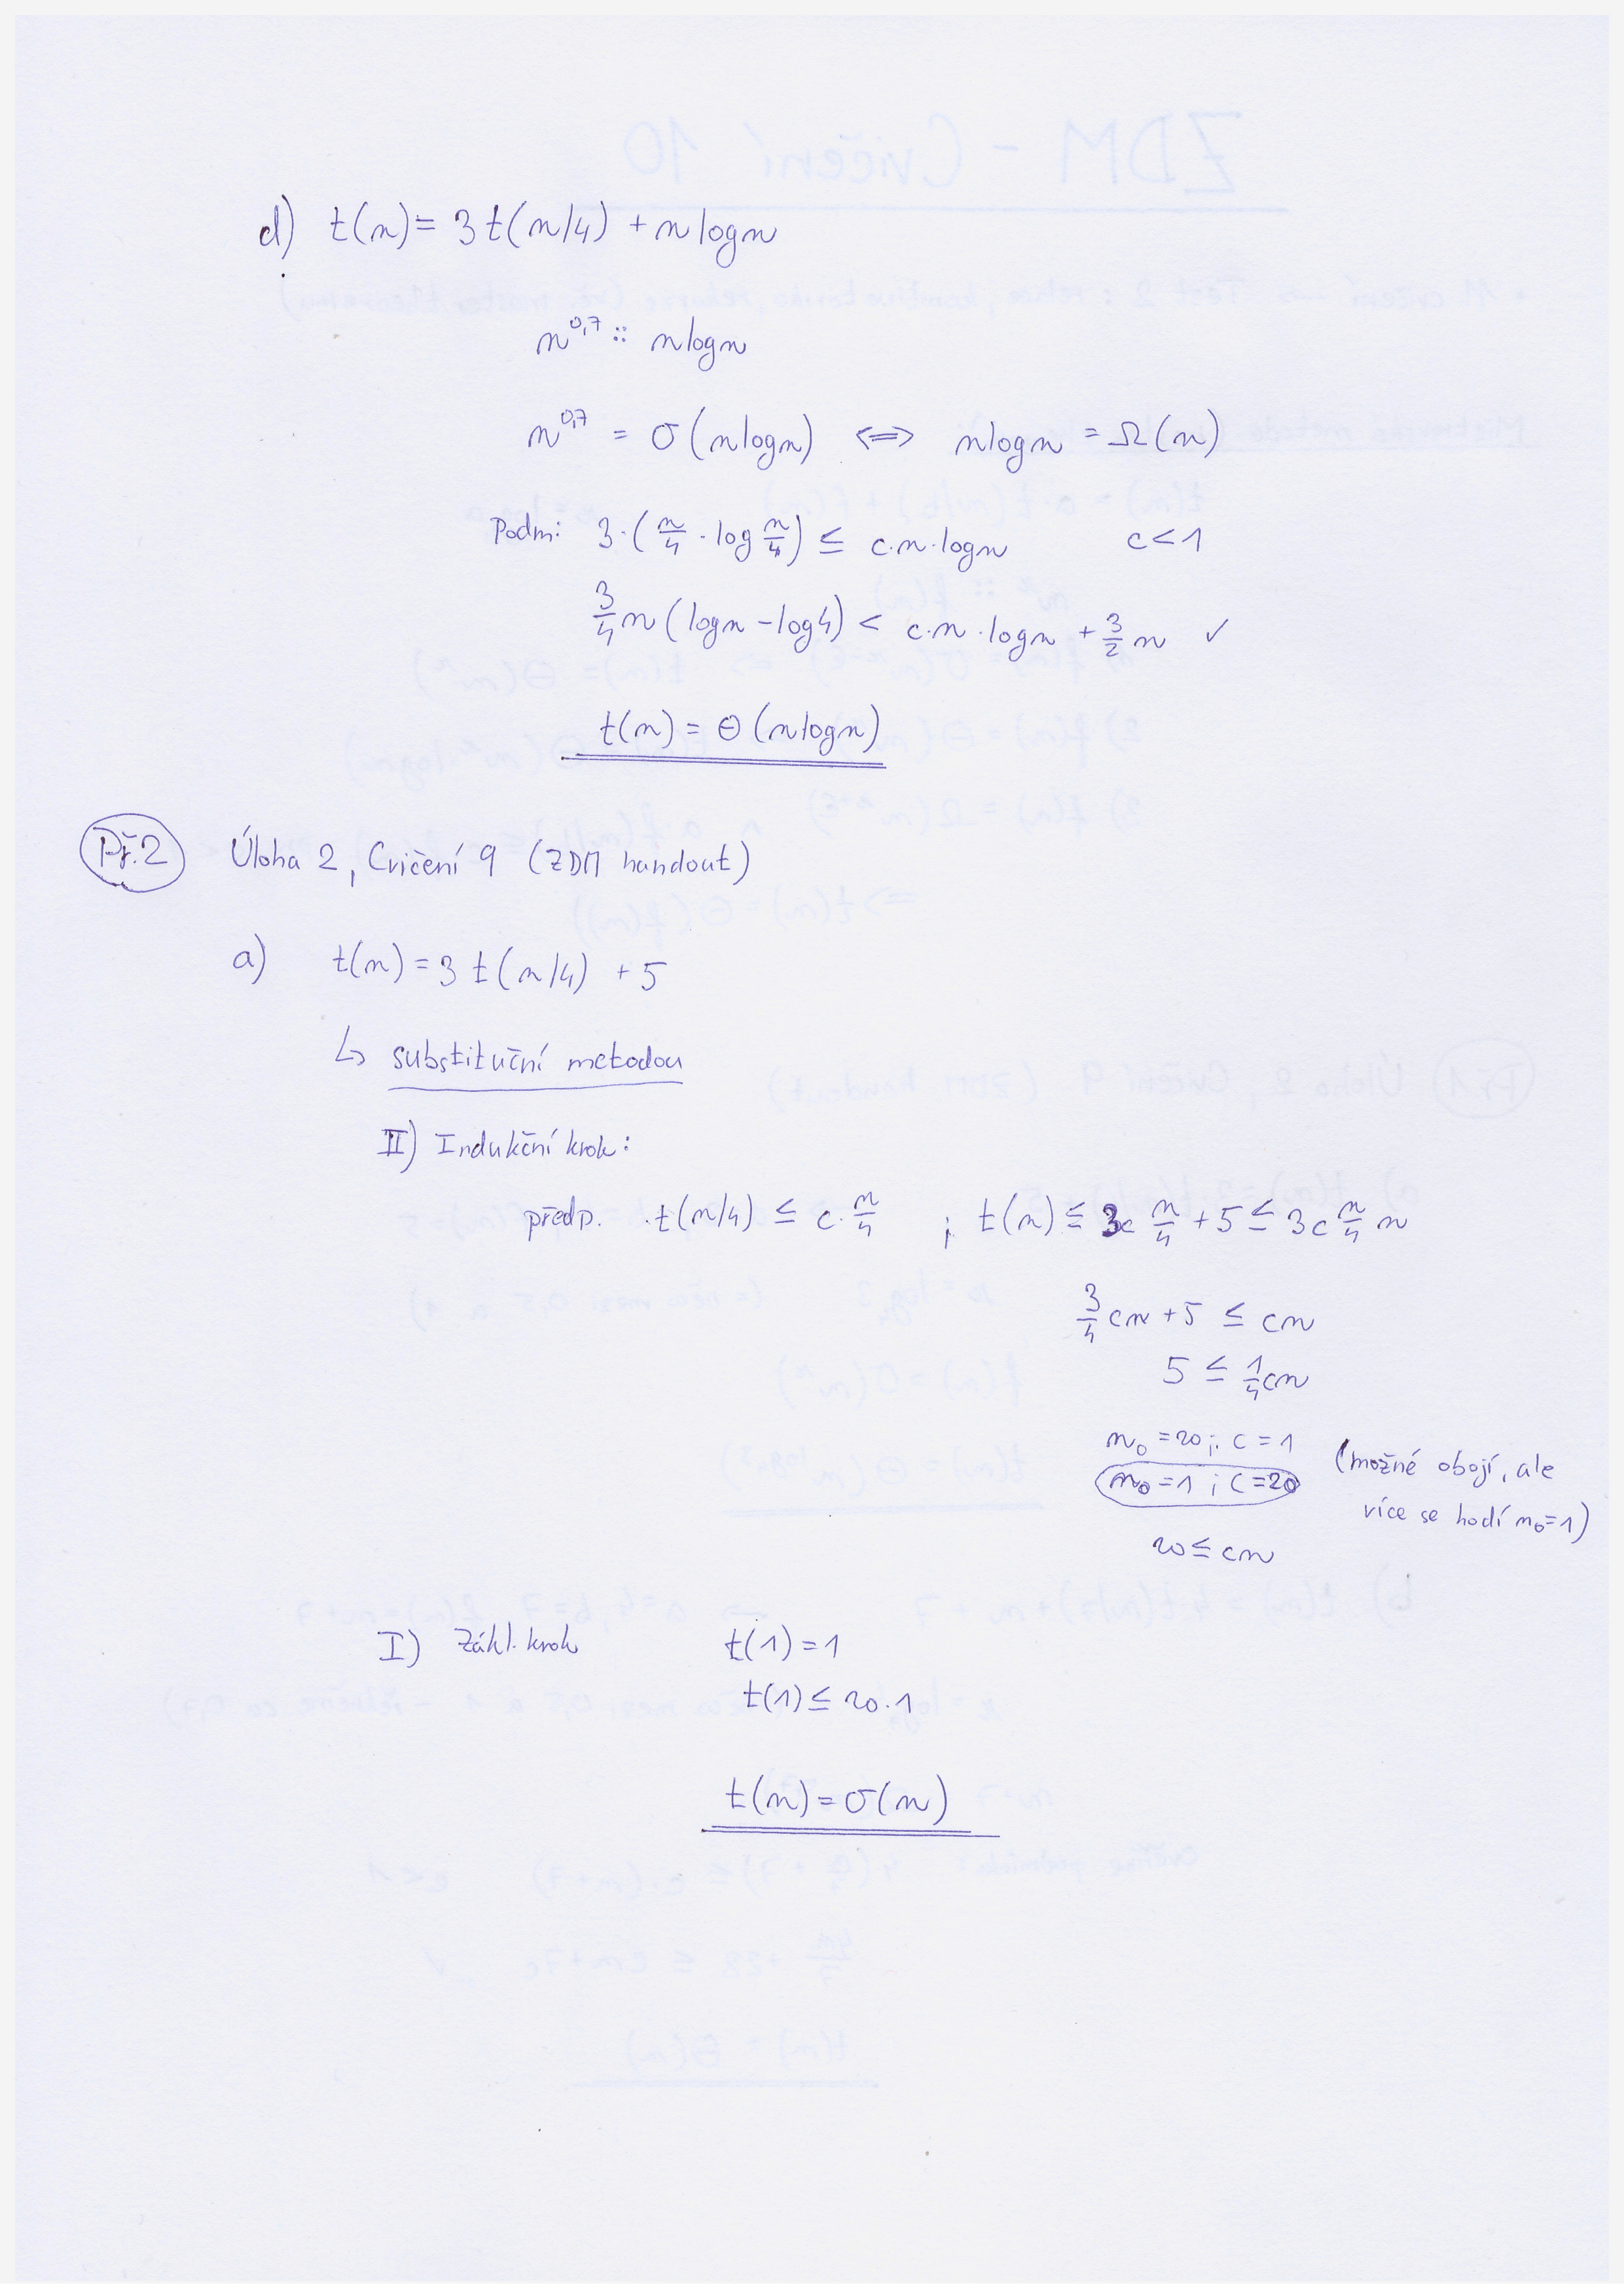 d) t(n) = 3t(n/4) + n log n
n^0,7 :: n log n
n^0,7 = O(n log n) <=> n log n = Ω(n)
Podm: 3·(n/4 · log n/4) ≤ c·n·log n c<1
3/4 n (log n - log 4) < c·n·log n + 3/2 n ✓
t(n) = Θ(n log n)
Př.2 Úloha 2, Cvičení 9 (ZDM handout)
a) t(n) = 3 t(n/4) + 5
↳ substituční metodou
II) Indukční krok:
předp. t(n/4) ≤ c·n/4 ; t(n) ≤ 3c n/4 + 5 ≤ 3c n/4 n
3/4 cn + 5 ≤ cn
5 ≤ 1/4 cn
n₀ = 20; c = 1
n₀ = 1 ; c = 20
(možné obojí, ale
více se hodí n₀=1)
20 ≤ cn
I) Zákl. krok t(1) = 1
t(1) ≤ 20·1
t(n) = O(n)